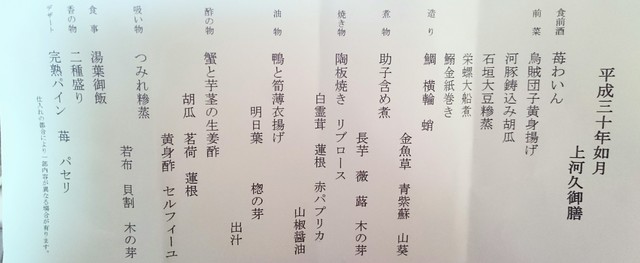 平成三十年如月
上河久御膳
食前酒 苺わいん
前菜 烏賊団子黄身揚げ
河豚鋳込み胡瓜
石垣大豆糝蒸
栄螺大船煮
鰯金紙巻き
造り 鯛 横輪 蛸
金魚草 青紫蘇 山葵
煮物 助子含め煮
長芋 薇 蕗 木の芽
焼き物 陶板焼き リブロース
白霊茸 蓮根 赤パプリカ
山椒醤油
油物 鴨と筍薄衣揚げ
明日葉 楤の芽
出汁
酢の物 蟹と芋茎の生姜酢
胡瓜 茗荷 蓮根
黄身酢 セルフィーユ
吸い物 つみれ糝蒸
若布 貝割 木の芽
食事 湯葉御飯
香の物 二種盛り
デザート 完熟パイン 苺 パセリ
仕入れの都合により一部内容が異なる場合が有ります。